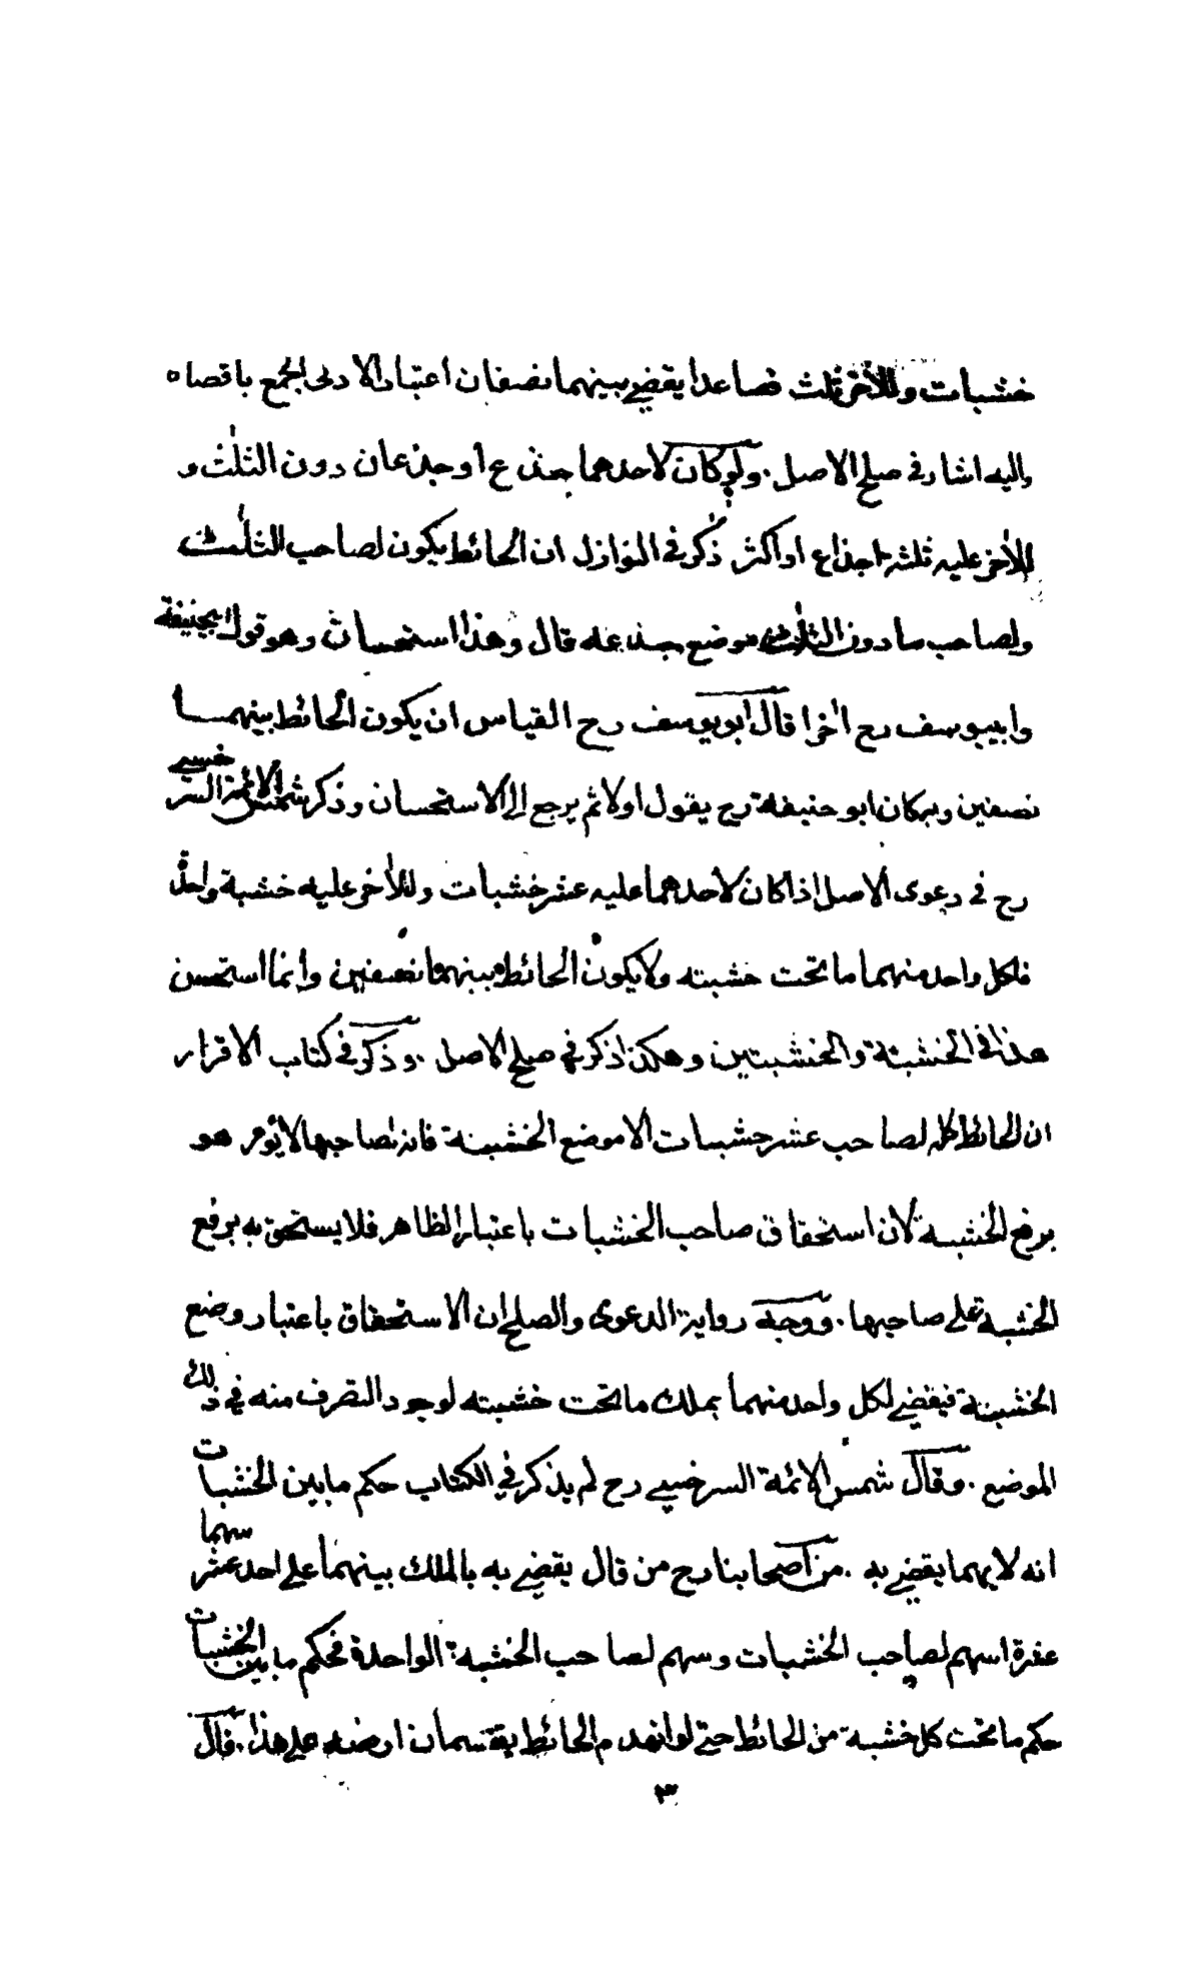 خشبات وللآخر ثلث فصاعدا يقضي بينهما نصفان اعتبار الادنى الجمع باقصاه
واليه اشار في صلح الاصل . ولو كان لاحدهما جذع أو جذعان دون الثلث و
للآخر عليه ثلثه اجذاع او اكثر ذكر في النوازل ان الحائط يكون لصاحب الثلث
ولصاحب مادون الثلث موضع جذعه قال وهذا استحسان وهو قول ابيحنيفة
وابييوسف رح اخرا قال ابويوسف رح القياس ان يكون الحائط بينهما
نصفين وبه كان ابو حنيفة رح يقول اولا ثم يرجع الى الاستحسان وذكر شمس الائمة السرخسي
رح في دعوى الاصل اذا كان لاحدهما عليه عشر خشبات وللآخر عليه خشبة واحدة
فلكل واحد منهما ما تحت خشبته ولا يكون الحائط بينهما نصفين وانما استحسن
هذا في الخشبة والخشبتين وهكذا ذكر في صلح الاصل . وذكر في كتاب الاقرار
ان الحائط كله لصاحب عشر خشبات الا موضع الخشبة فانه لصاحبها لا يؤمر هو
برفع الخشبة لأن استحقاق صاحب الخشبات باعتبار الظاهر فلا يستحق به برفع
الخشبة على صاحبها . ووجه رواية الدعوى والصلح ان الاستحقاق باعتبار وضع
الخشبة فيقضي لكل واحد منهما بملك ما تحت خشبته لوجود التصرف منه في ذلك
الموضع . وقال شمس الائمة السرخسي رح لم يذكر في الكتاب حكم ما بين الخشبات
انه لايهما يقضي به . من اصحابنا رح من قال يقضي به بالملك بينهما على احد عشر سهما
عشرة اسهم لصاحب الخشبات وسهم لصاحب الخشبة الواحدة فحكم ما بين الخشبات
حكم ما تحت كل خشبة من الحائط حتى لو انهدم الحائط يقتسمان ارضه على هذا . قال
٣